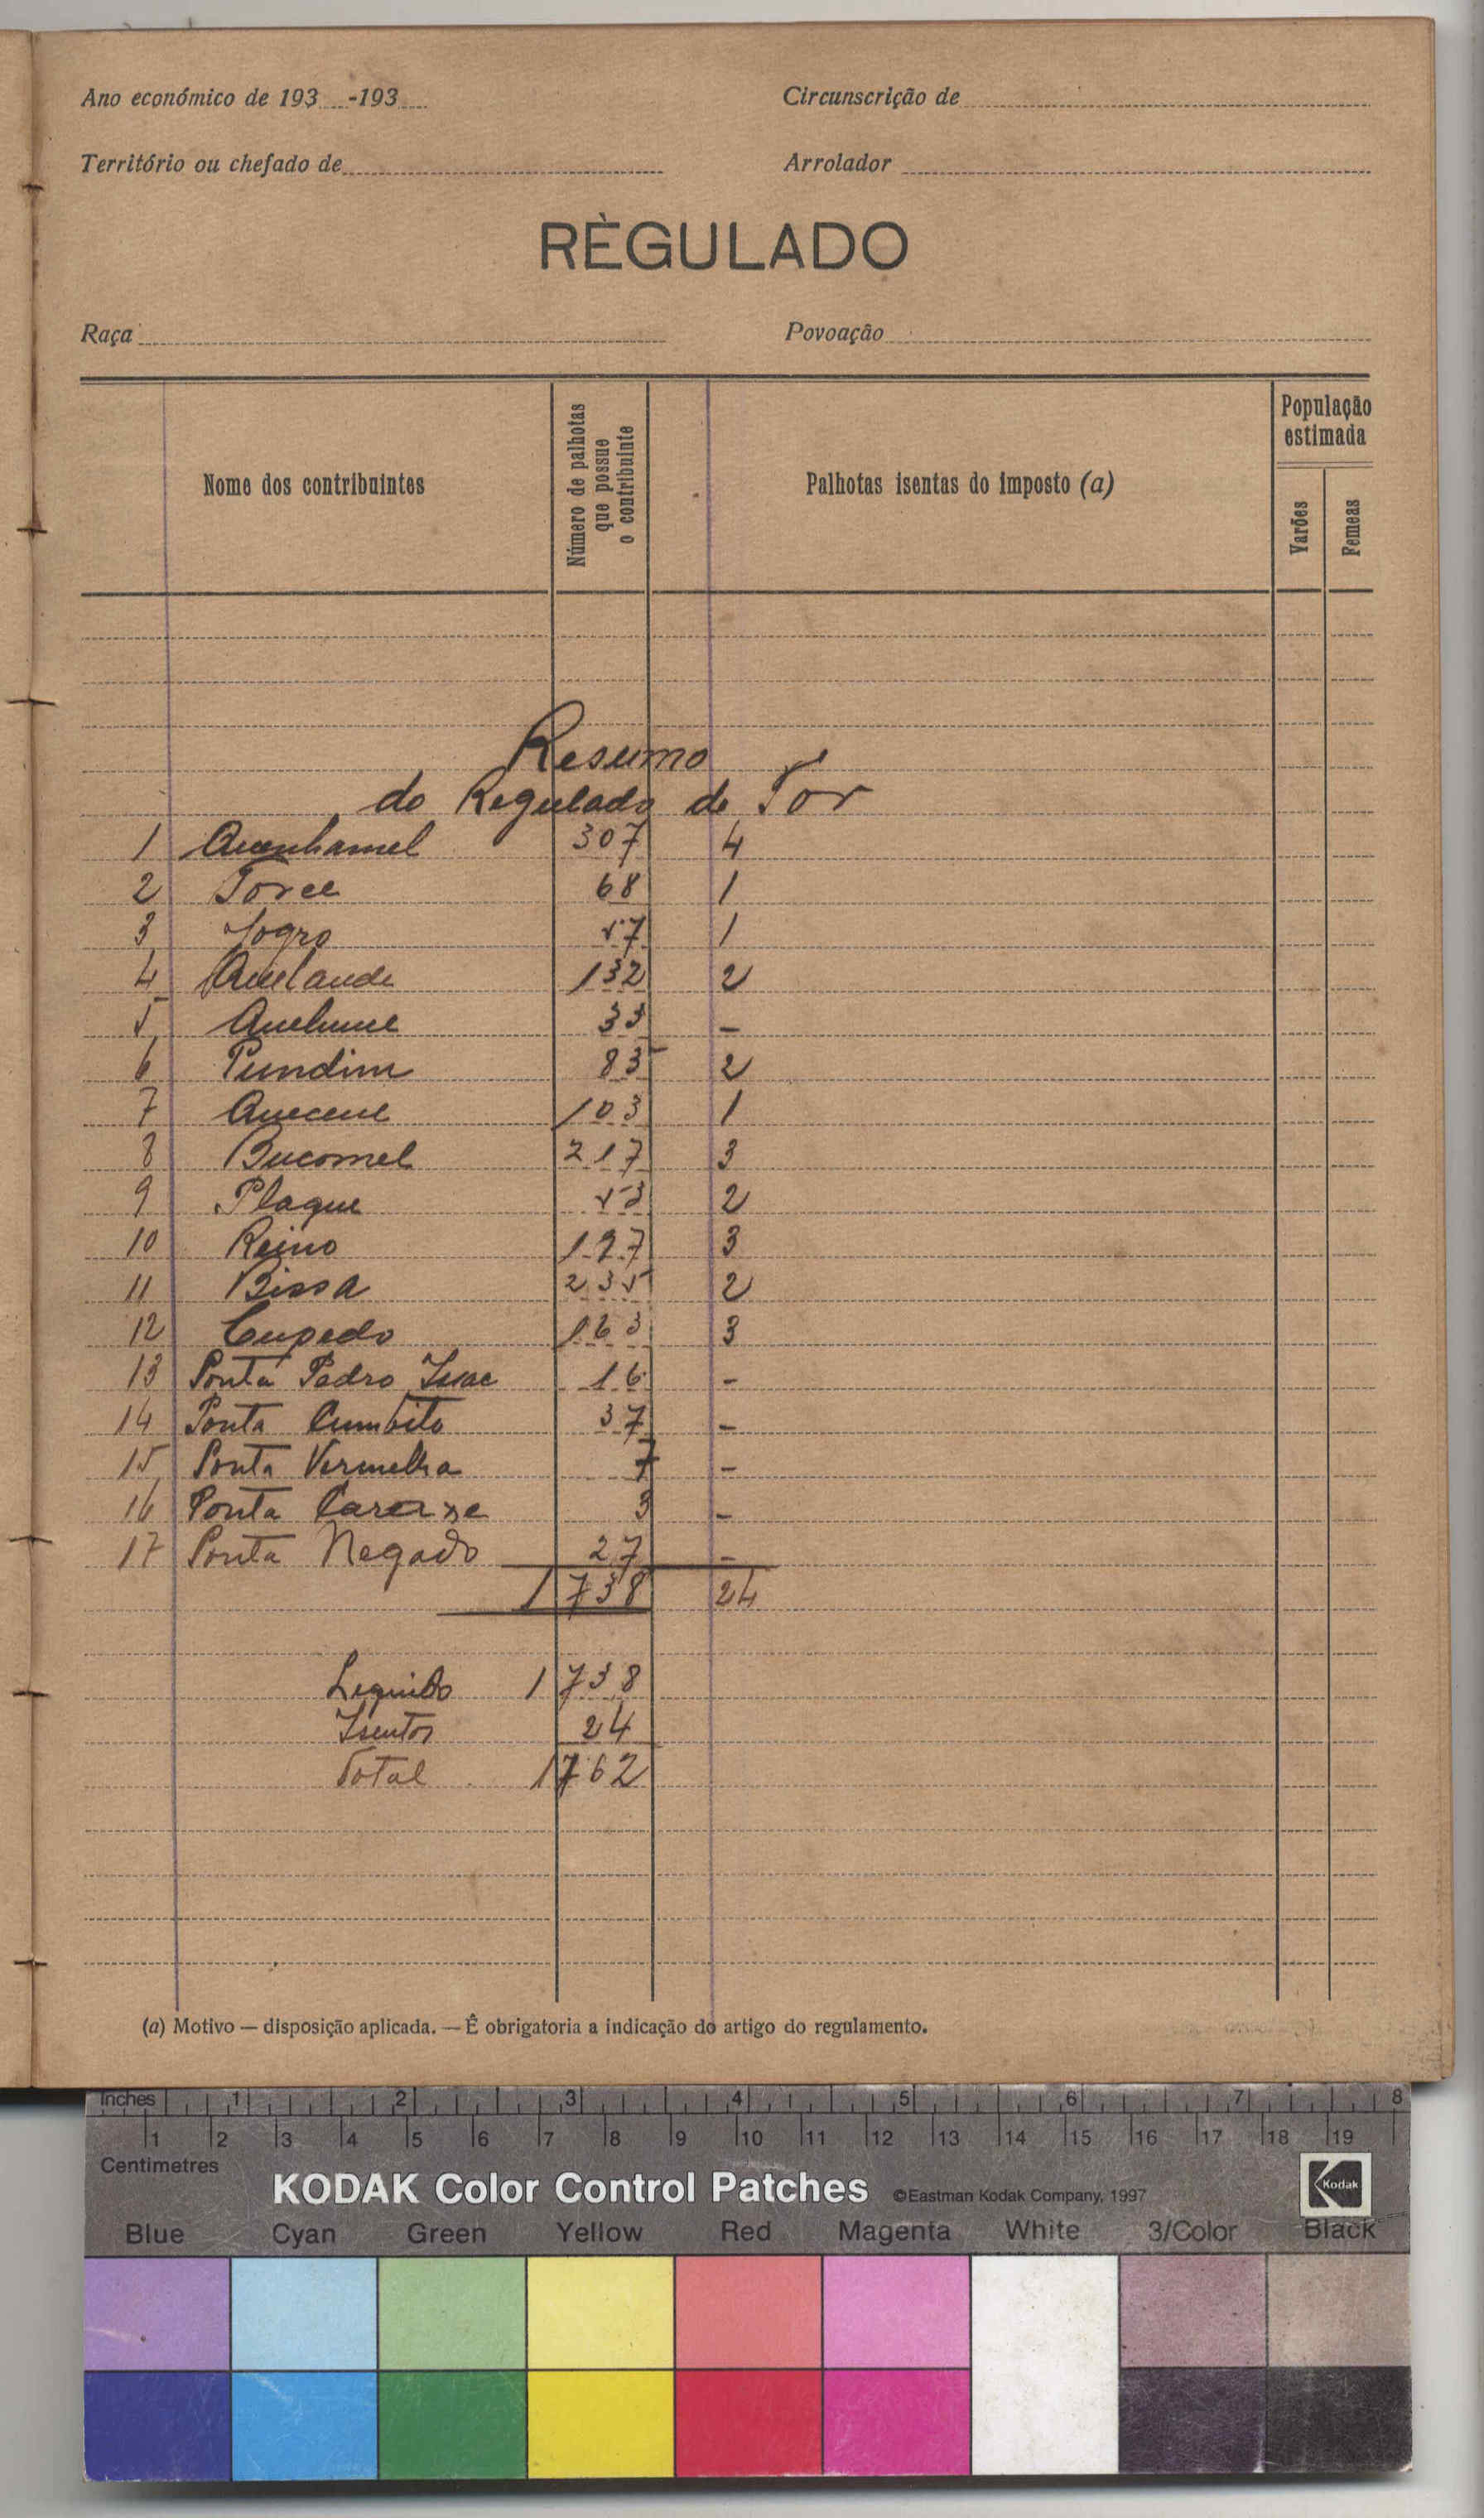 Ano económico de 193 -193
Circunscrição de
Território ou chefado de
Arrolador
RÈGULADO
Raça
Povoação
Nome dos contribuintes
Número de palhotas que possue o contribuinte
Palhotas isentas do imposto (a)
População estimada
Varões
Femeas
Resumo
do Regulado de Tor
1 Quenhamel 307 4
2 Torce 68 1
3 57 1
4 Quelande 132 2
5 33 -
6 Pundim 83 2
7 Quecene 103 1
8 Bucomel 217 3
9 Plaque 53 2
10 Reino 197 3
11 Bissa 235 2
12 Cupedo 163 3
13 Ponta Pedro Isac 16 -
14 Ponta Cumbito 37 -
15 Ponta Vermelha 7 -
16 Ponta 3 -
17 Ponta Negado 27 -
1 738 24
Liquido 1 738
Isentos 24
Total 1762
(a) Motivo — disposição aplicada. — É obrigatoria a indicação do artigo do regulamento.
Inches 1 2 3 4 5 6 7 8
1 2 3 4 5 6 7 8 9 10 11 12 13 14 15 16 17 18 19
Centimetres
KODAK Color Control Patches ©Eastman Kodak Company, 1997 Kodak
Blue Cyan Green Yellow Red Magenta White 3/Color Black